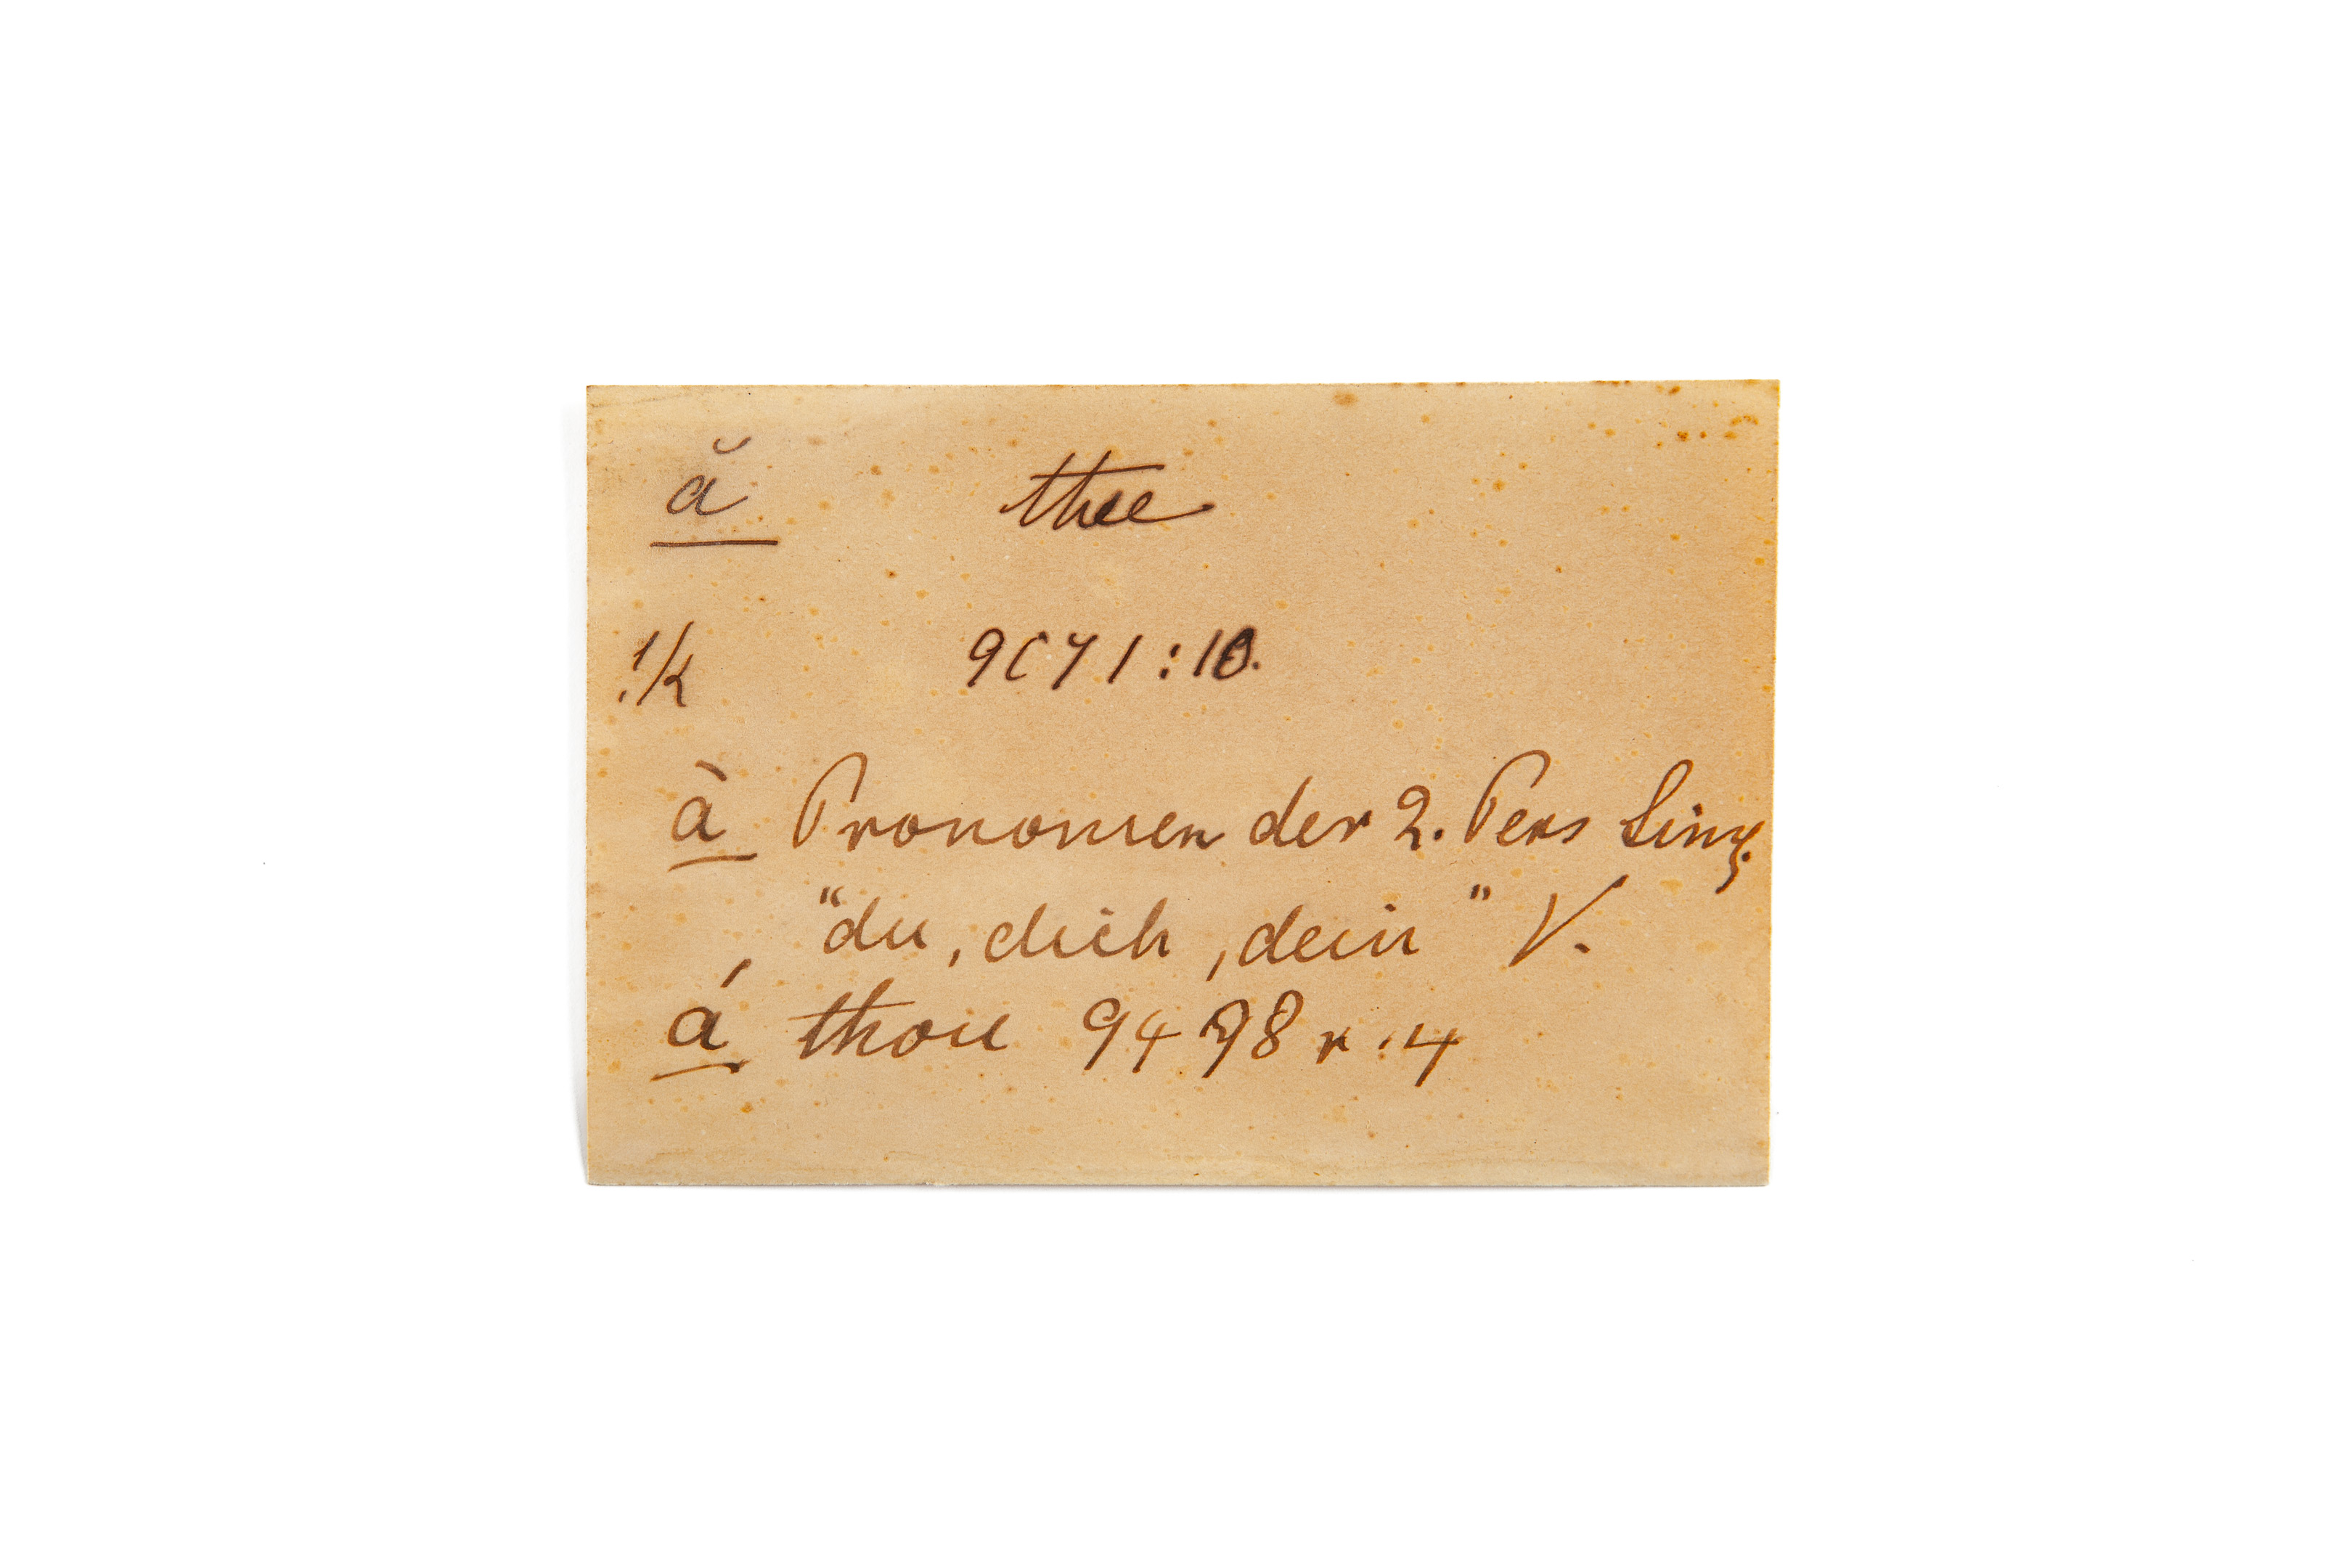 ă thee
!/k 9071:10.
à Pronomen der 2. Pers Sing.
"du, dich, dein" V.
á thou 9478 r.:4